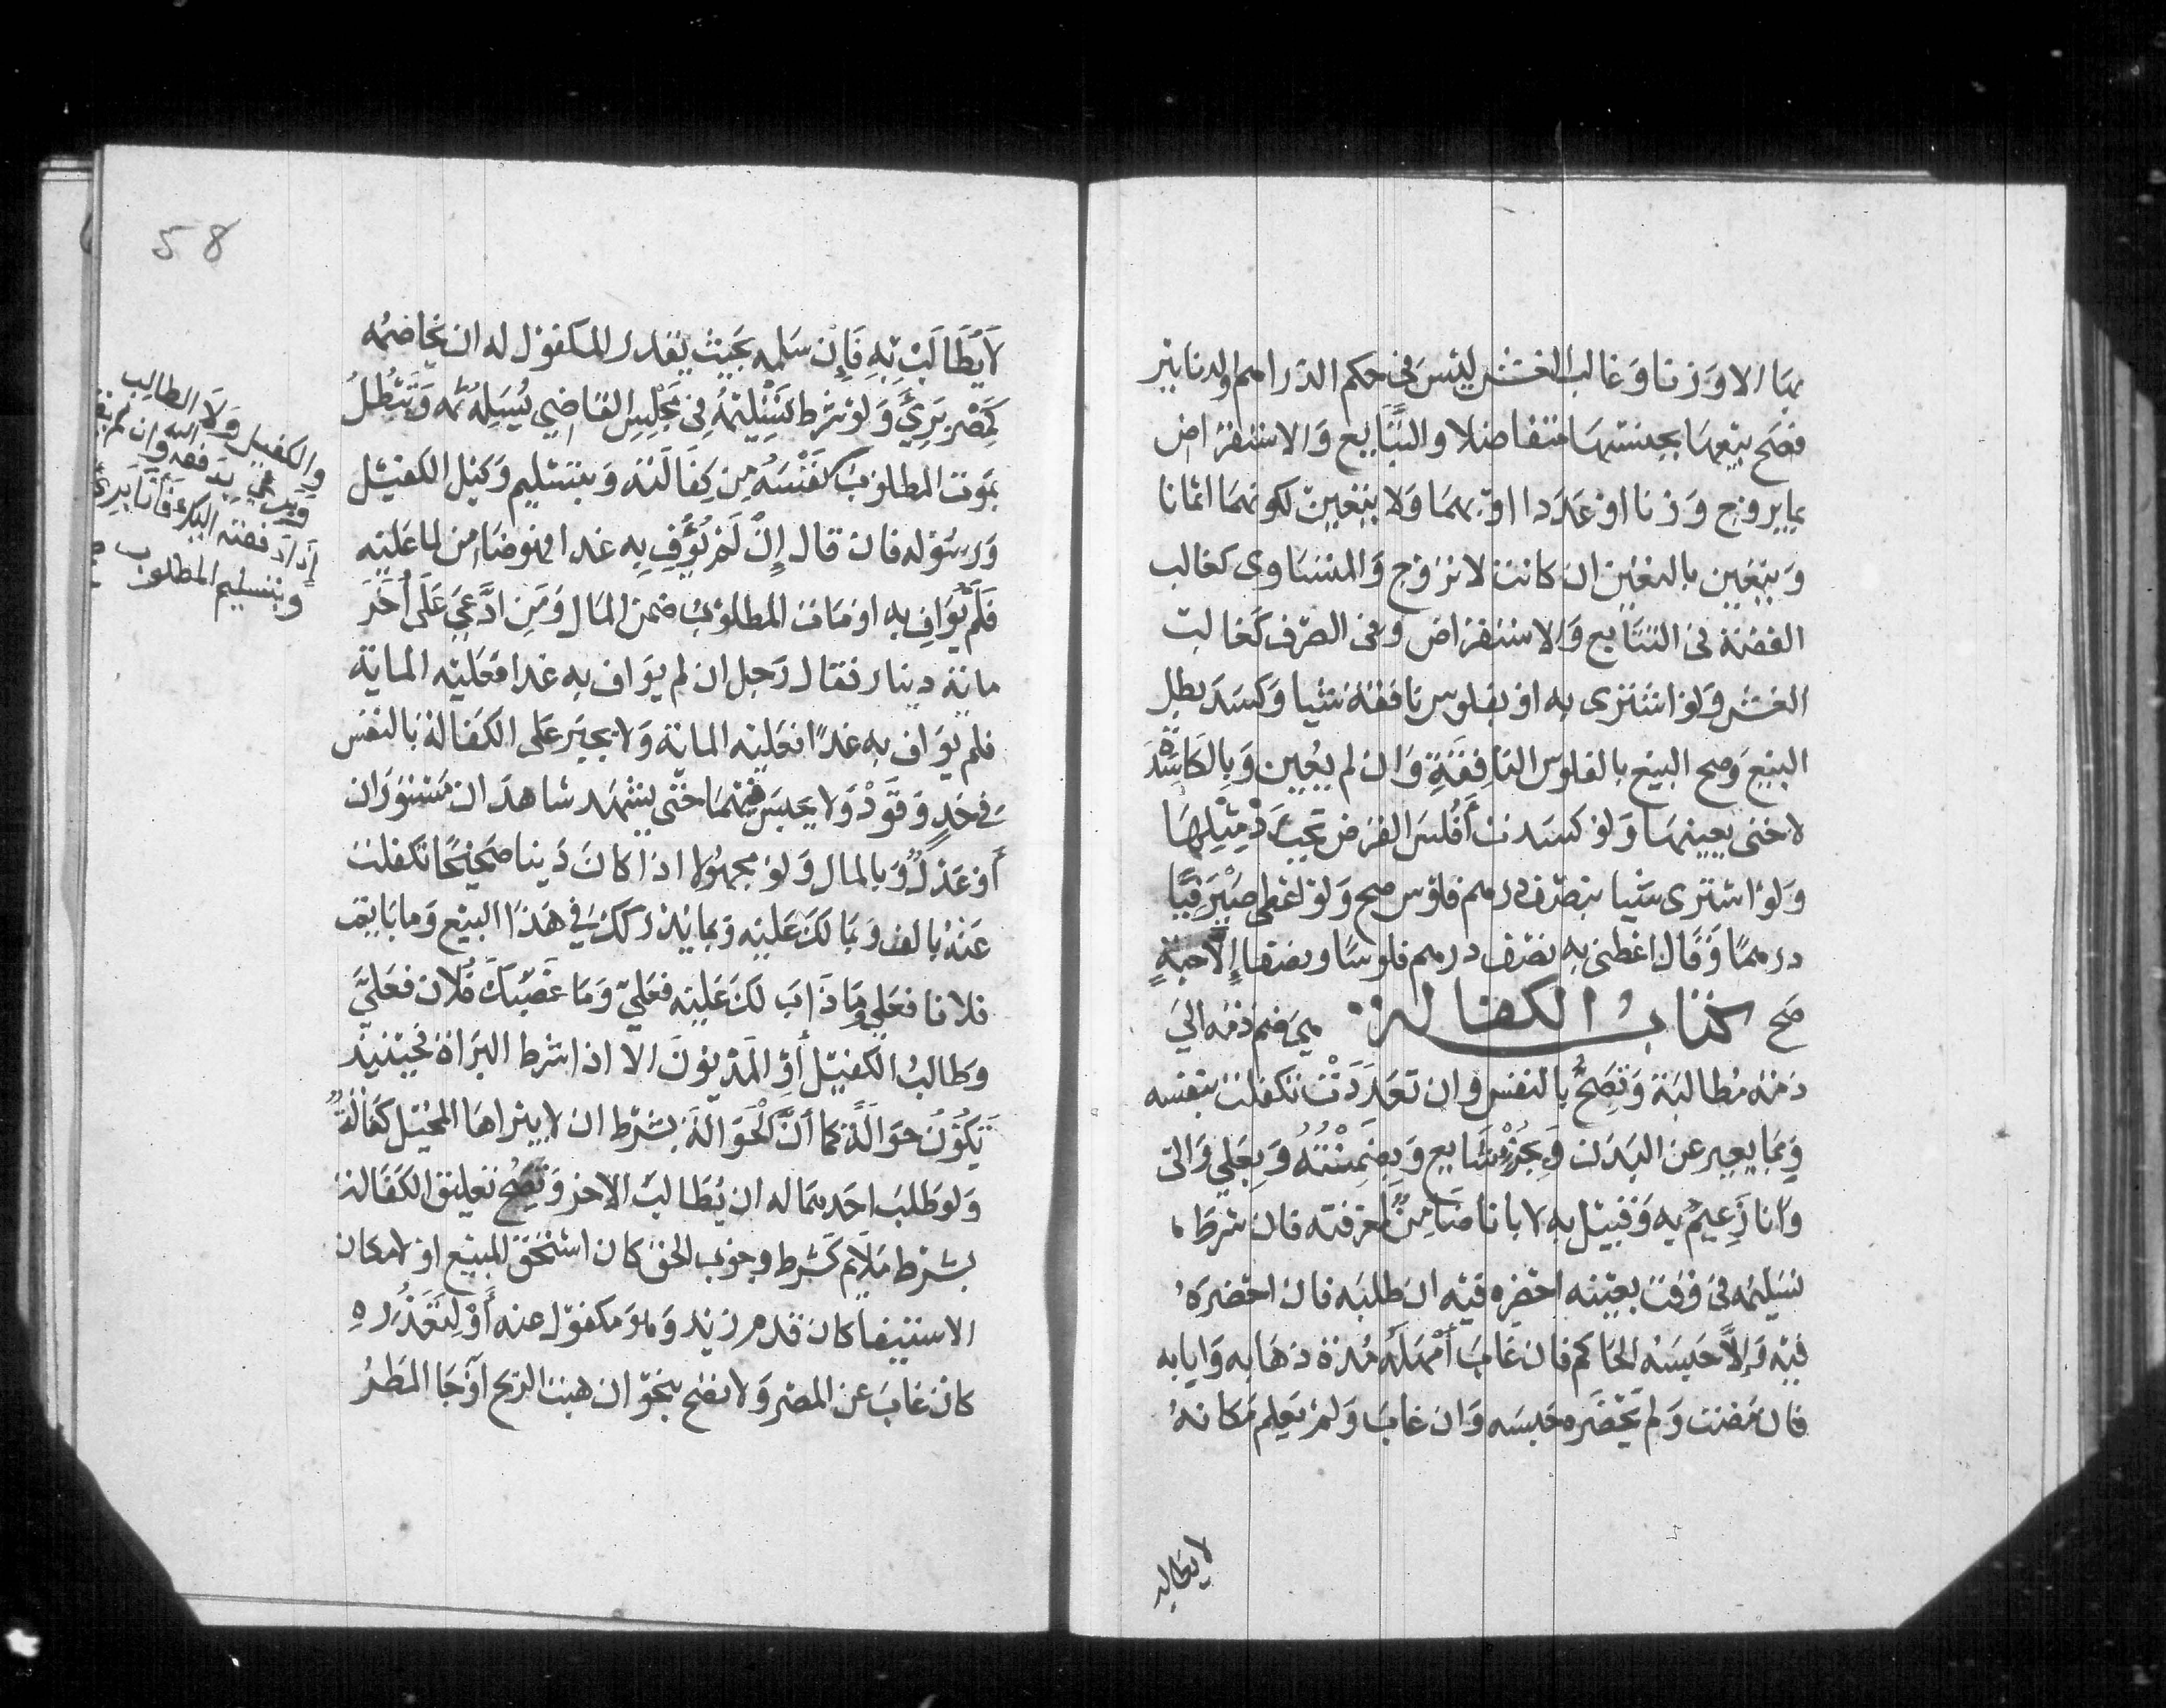 بها الا وزنا وغالب الغش ليس في حكم الدراهم والدنانير
فصح بيعها بجنسها متفاضلا والتبايع والاستقراض
بما يروج وزنا او عددا او بهما ولا يتعين لكونهما اثمانا
ويتعين بالتعيين ان كانت لا تروج والمتساوى كغالب
الفضة في التبايع والاستقراض وفى الصرف كغالب
الغش ولو اشترى به او بفلوس نافقة شيا وكسد بطل
البيع وصح البيع بالفلوس النافقة وان لم يعين وبالكاسدة
لا حتى يعينها ولو كسدت افلس القرض تجب رد مثلها
ولو اشترى شيا بنصف درهم فلوس صح ولو اعطى صيرفيا
درهما وقال اعطنى به نصف درهم فلوسا ونصفا إلا حبة
صح كتاب الكفالة هي ضم ذمة الي
ذمة مطالبة وتصح بالنفس وان تعددت بتكفلت بنفسه
وبما يعبر عن البدن وبجزء شايع وبضمنته وبعلي والى
وانا زعيم به وقبيل به لا بانا ضامن لمعرفته فان شرط
تسليمه في وقت بعينه احضره فيه ان طلبه فان احضره
فيه وإلا حبسه الحاكم فان غاب أمهله مدة ذهابه وايابه
فان مضت ولم يحضره حبسه وان غاب ولم يعلم مكانه
لا يطالب
58
لا يطالب به فإن سلمه بحيث يقدر المكفول له ان يخاصمه
كمصر بريء ولو شرط تسليمه في مجلس القاضي يسلمه ثمه وتبطل
بموت المطلوب كنفسه من كفالته وبتسليم وكيل الكفيل
ورسوله فان قال إن لم يوف به غدا فهو ضامن لما عليه
فلم يواف به او مات المطلوب ضمن المال ومن ادعى على أخر
ماية دينار فقال رجل ان لم يواف به غدا فعليه الماية
فلم يواف به غدا فعليه الماية ولا يجبر على الكفالة بالنفس
في حد وقود ولا يحبس فيهما حتى يشهد شاهدان مستوران
أو عدل وبالمال ولو مجهولا اذا كان دينا صحيحا بكفلت
عنه بالف وبما لك عليه وبما يدركك في هذا البيع وما بايعت
فلانا فعلي وما ذاب لك عليه فعلي وما غصبك فلان فعلي
وطالب الكفيل أو المديون الا اذا شرط البراة فحينيذ
تكون حوالة كما أن الحوالة بشرط ان لا يبرا بها المحيل كفالة
ولو طلب احدهما له ان يطالب الاخر وتصح تعليق الكفالة
بشرط ملايم كشرط وجوب الحق كان استحق المبيع او لامكان
الاستيفا كان قدم زيد وهو مكفول عنه أو لتعذره
كان غاب عن المصر ولا يصح بنحو ان هبت الريح أو جا المطر
والكفيل ولا الطالب
ويبري بدفعه اليه وان لم يقل
إذا دفعته اليك فأنا بريء
وبتسليم المطلوب